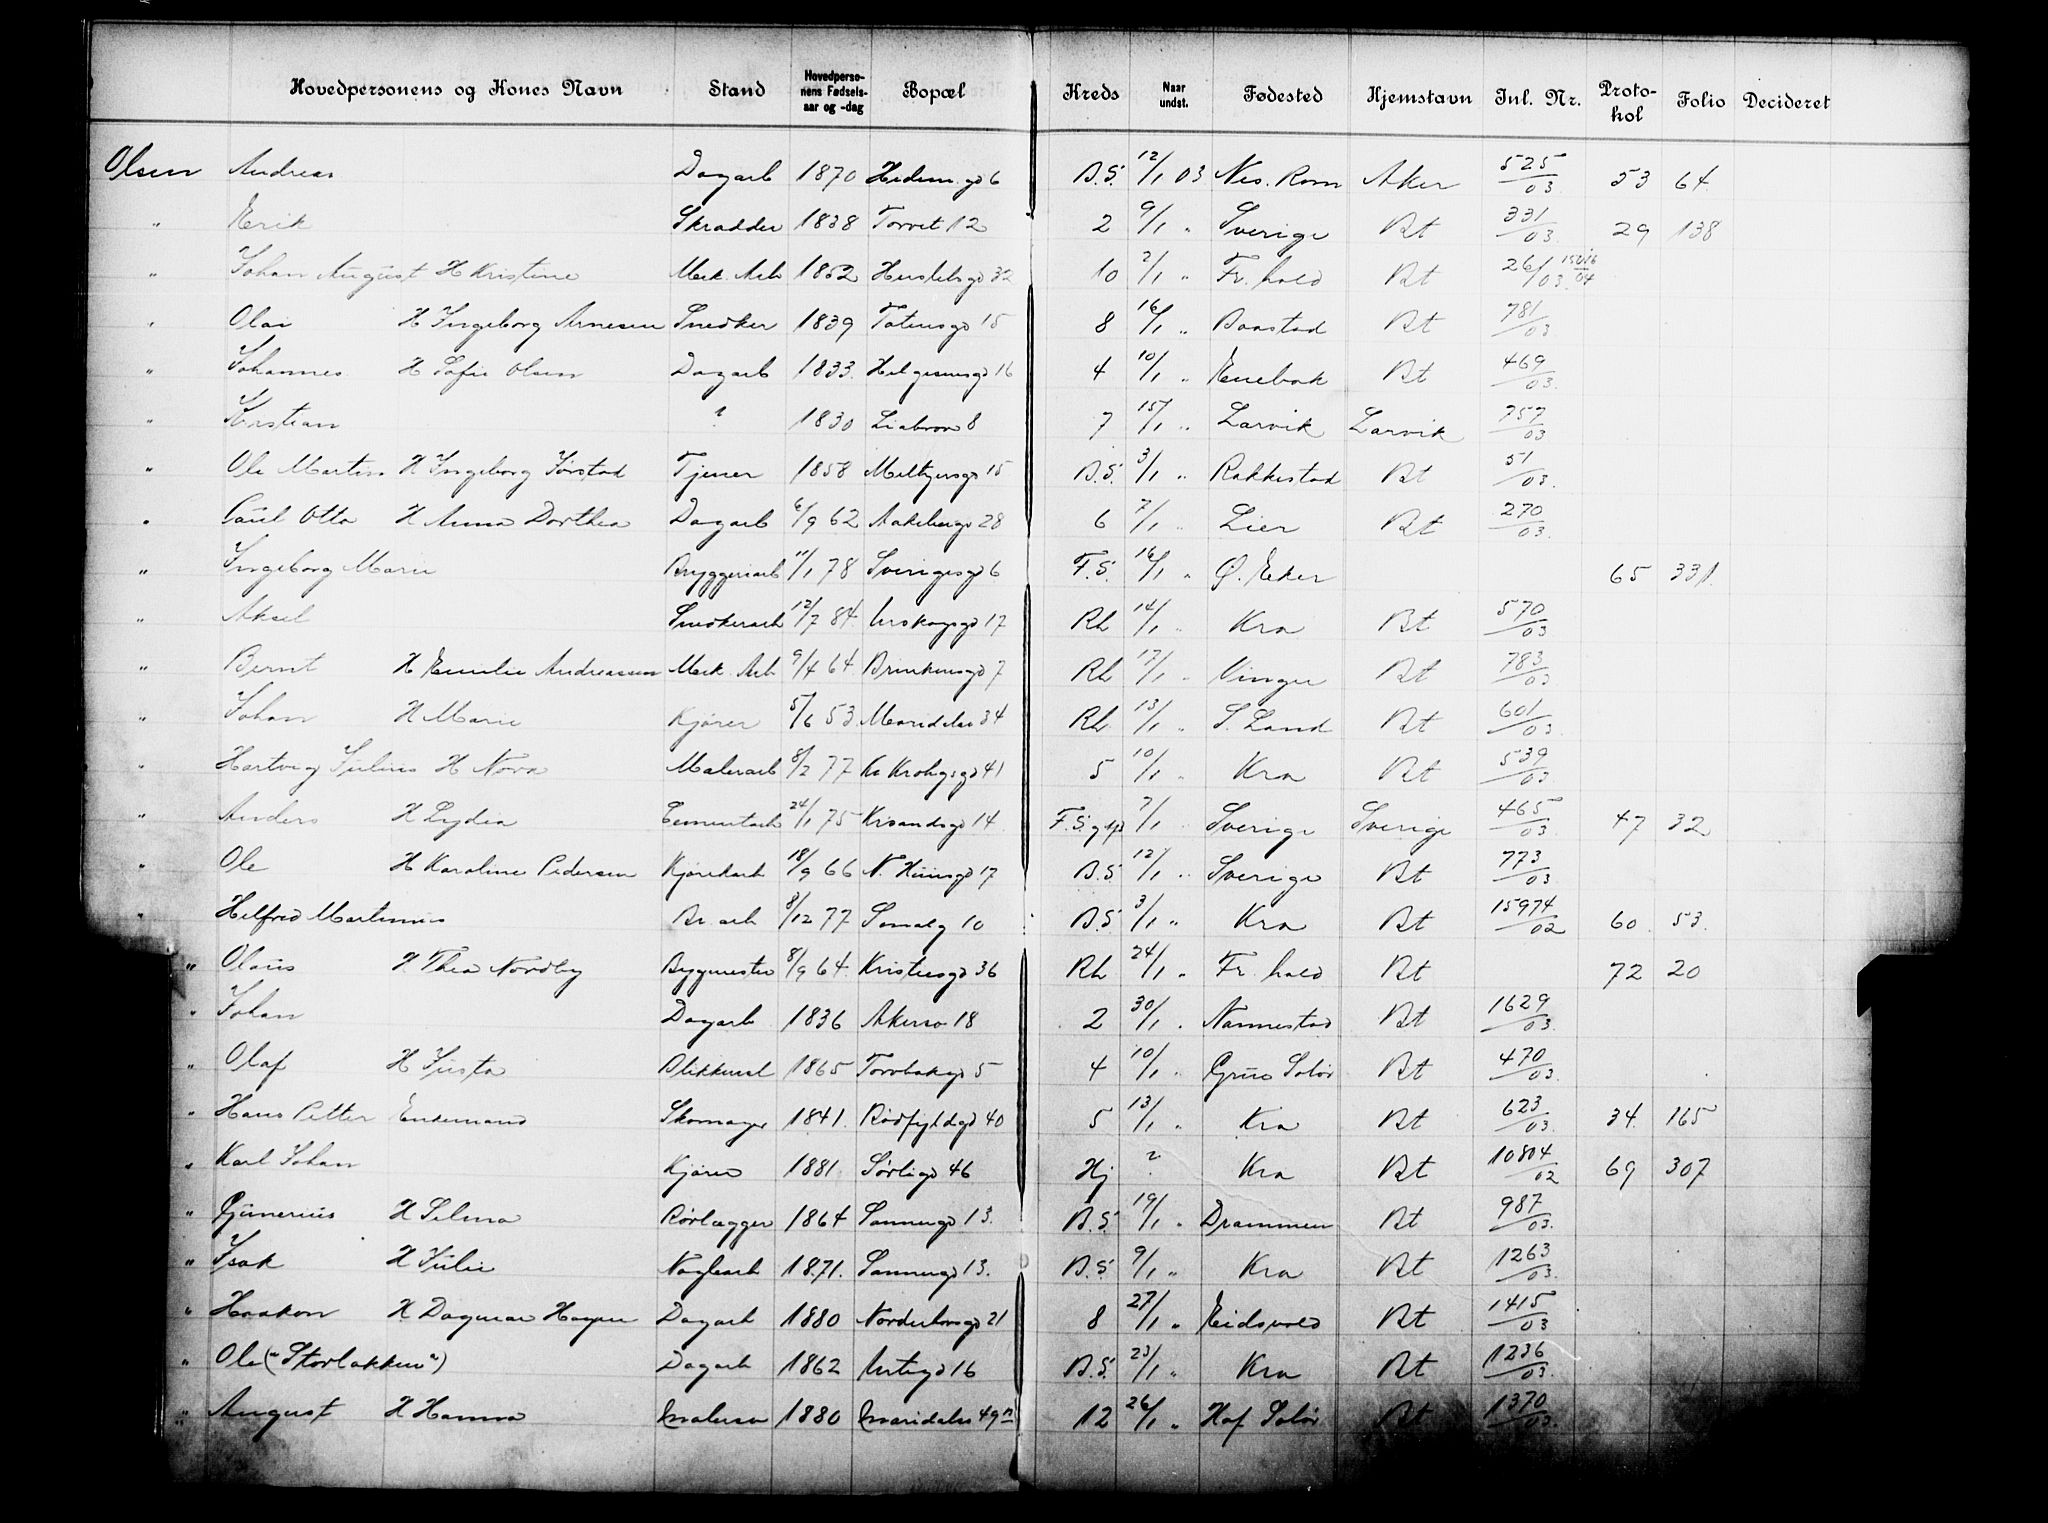 Hovedpersonens og Kones Navn Stand Hovedperso- nens Fødsels- aar og -dag Bopæl Kreds Naar undst. Fødested Hjemstavn Jnl. Nr. Proto- kol Folio Decideret
Olsen Andreas Dagarb 1870 Hedem.gd 6 B.S. 12/1 03 Nes. Rom Aker 525/03 53 64
" Erik Skradder 1838 Torvet 12 2 9/1 " Sverige Bt 331/03 29 138
" Johan August H Kristine Mek. Arb 1852 Herslebsgd 32 10 2/1 " Fr. hald Bt 26/03
" Olai H Ingeborg Arnesen Snedker 1839 Totensgd 15 8 16/1 " Baastad Bt 781/03
" Johannes H Sofie Olsen Dagarb 1833. Helgesensgd 16 4 10/1 " Enebak Bt 469/03
" Kristian ? 1830 Liabroa 8 7 15/1 " Larvik Larvik 757/03
" Ole Martin H Ingeborg Tjener 1858 Meltzersgd 15 B.S. 3/1 " Rakkestad Bt 51/03.
" Carl Otto H Anna Dorthea Dagarb 6/9 62 Aakebergv 28 6 7/1 " Lier Bt 270/03.
" Ingeborg Marie Bryggeriarb 11/1 78 Sverigesgd 6 F.S. 16/1 " Ø. Eker 65 331.
" Aksel Snedkerarb 12/7 84. Urskougsgd 17 Rh 14/1 " Kra Bt 570/03
" Bernt H Emilie Andreassen Mek. Arb 9/4 64 Brinkensgd 7 Rh 17/1 " Vinger Bt 783/03
" Johan H Marie Kjører 5/6 53 Maridalsv 34 Rh 13/1 " S. Land Bt 601/03
" Hartvig Julius H Nora Malerarb 8/2 77 Kr Krohgsgd 41 5 10/1 " Kra Bt 539/03
" Anders H Lydia Cementarb 24/1 75 Krsandsgd 14 F.S. 7/1 Sverige Sverige 465/03 47 32
" Ole H Karoline Pedersen Kjørekarl 18/9 66 N. Huusgd 17 B.S. 12/1 " Sverige Bt 773/03
" Helfred Martinius Br. arb 8/12 77 10 B.S 3/1 " Kra Bt 15974/02 60 53.
" Olaus H Thea Nordby Bygmester 8/9 64. Kristiesgd 36 Rh 24/1 " Fr. hald Bt 72 20
" Johan Dagarb 1836 Akersv 18 2 30/1 " Nannestad Bt 1629/03.
" Olaf H Justa Blikkensl 1865 Torvbakgd 5 4 10/1 " Grue Solør Bt 470/03.
" Hans Petter Enkemand Skomager 1841. Rødfyldgd 40 5 13/1 " Kra Bt 623/03. 34. 165
" Karl Johan Kjører 1881 Sørligd 46 Hj ? Kra Bt 10804/02 69 307
" Gunerius H Selma Rørlægger 1864 Sannergd 13. B.S. 19/1 " Drammen Bt 987/03.
" Isak H Julie 1871. Sannergd 13. B.S. 9/1 " Kra Bt 1263/03.
" Haakon H Dagmar Hagen Dagarb 1880 21 8 27/1 " Eidsvold Bt 1415/03
" Ole ("Storbakken") Dagarb 1862 Urtegd 16 B.S. 23/1 " Kra Bt 1236/03.
" August H Hanna Malersv 1880 Maridalsv 49 12 26/1 " Hof Solør Bt 1370/03.